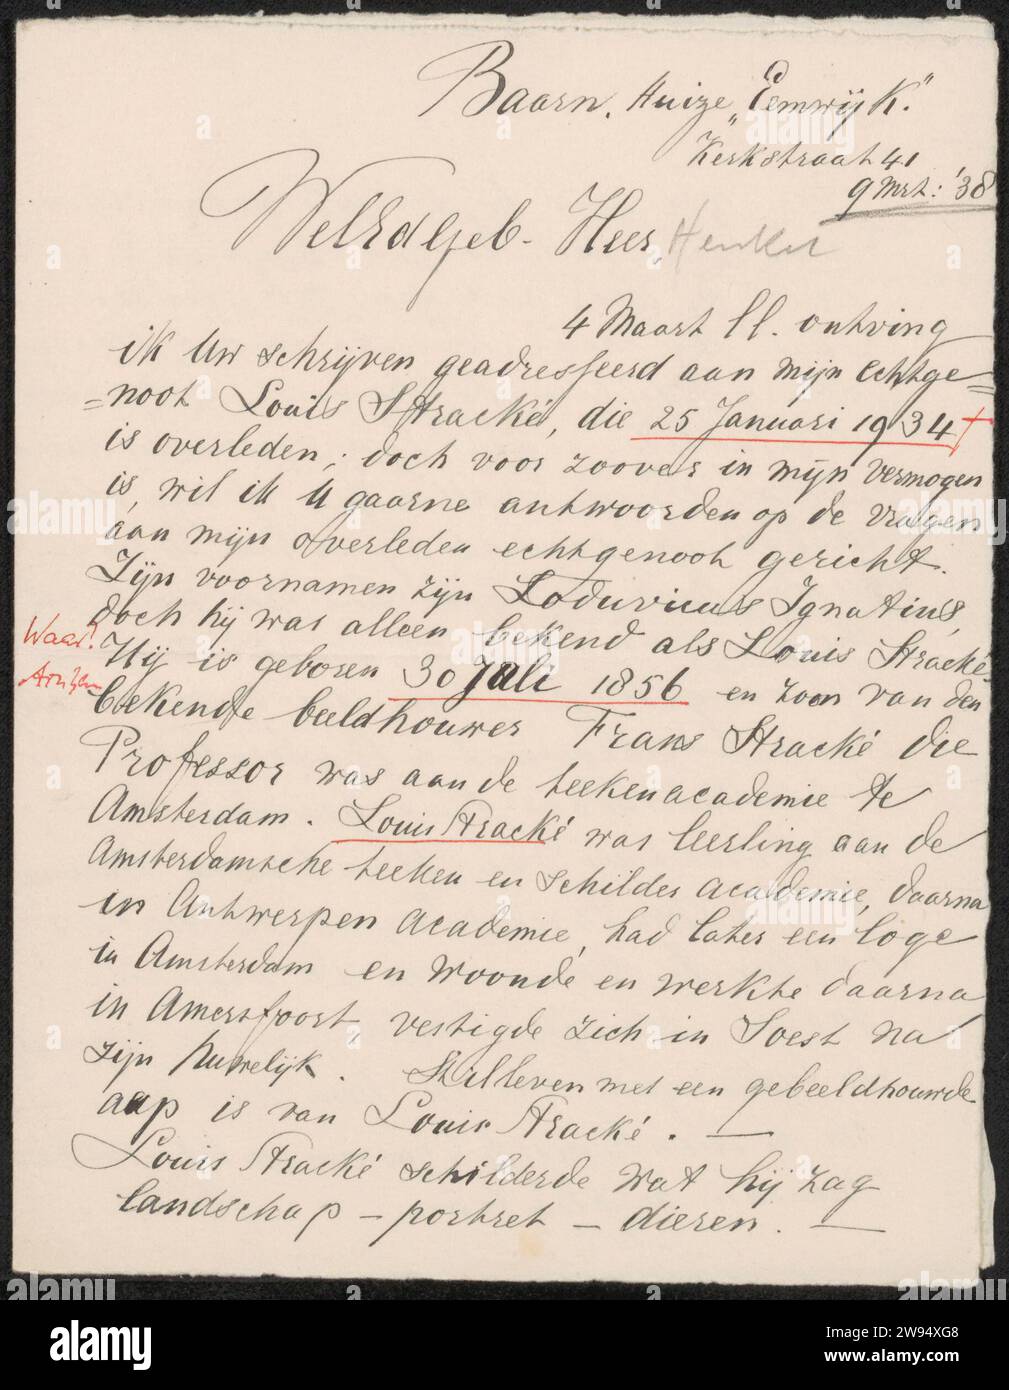 Baarn, Huize „Eemwijk."
Kerkstraat 41
9 Mrt: '38
WelEdlgeb. Heer, Henkel
4 Maart ll. ontving
ik Uw schrijven geadresseerd aan mijn echtge=
=noot Louis Stracké, die 25 Januari 1934 †
is overleden; doch voor zoover in mijn vermogen
is, wil ik U gaarne antwoorden op de vragen
aan mijn overleden echtgenoot gericht.
Zijn voornamen zijn Loduvicus Ignatius,
doch hij was alleen bekend als Louis Stracké.
Waar?
Hij is geboren 30 Juli 1856 en zoon van den
Arnhem
bekende beeldhouwer Frans Stracké die
Professor was aan de teekenacademie te
Amsterdam. Louis Stracké was leerling aan de
Amsterdamsche teeken en schilder academie, daarna
in Antwerpen academie, had later een loge
in Amsterdam en woonde en werkte daarna
in Amersfoort, vestigde zich in Soest na
zijn huwelijk. Stilleven met een gebeeldhouwde
aap is van Louis Stracké. —
Louis Stracké schilderde wat hij zag
landschap – portret – dieren. —
alamy
Image ID: 2W94XG8
www.alamy.com